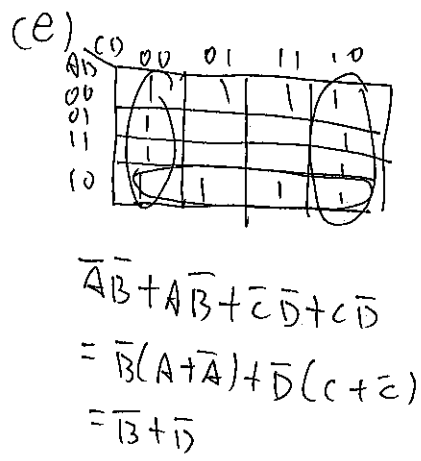 (e)
CD 00 01 11 10
AB
00 1 1 1 1
01 1 1
11 1 1
10 1 1 1 1
A̅B̅+AB̅+C̅D̅+CD̅
=B̅(A+A̅)+D̅(C+C̅)
=B̅+D̅